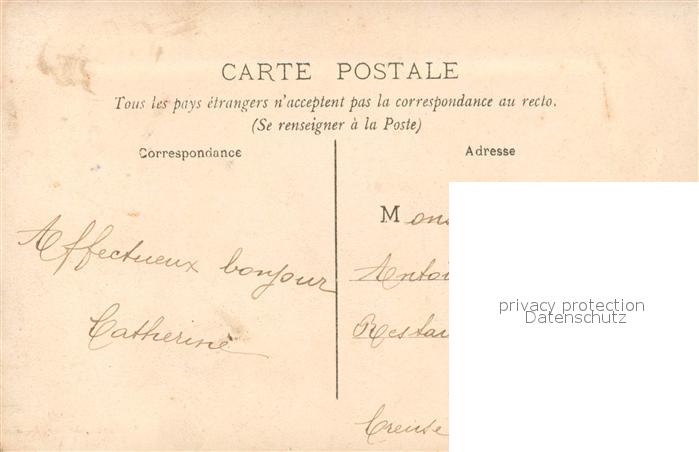 CARTE POSTALE
Tous les pays étrangers n'acceptent pas la correspondance au recto.
(Se renseigner à la Poste)
Correspondance
Adresse
Affectueux bonjour
Catherine
Mons
Antoi
Restau
Creuse
privacy protection
Datenschutz